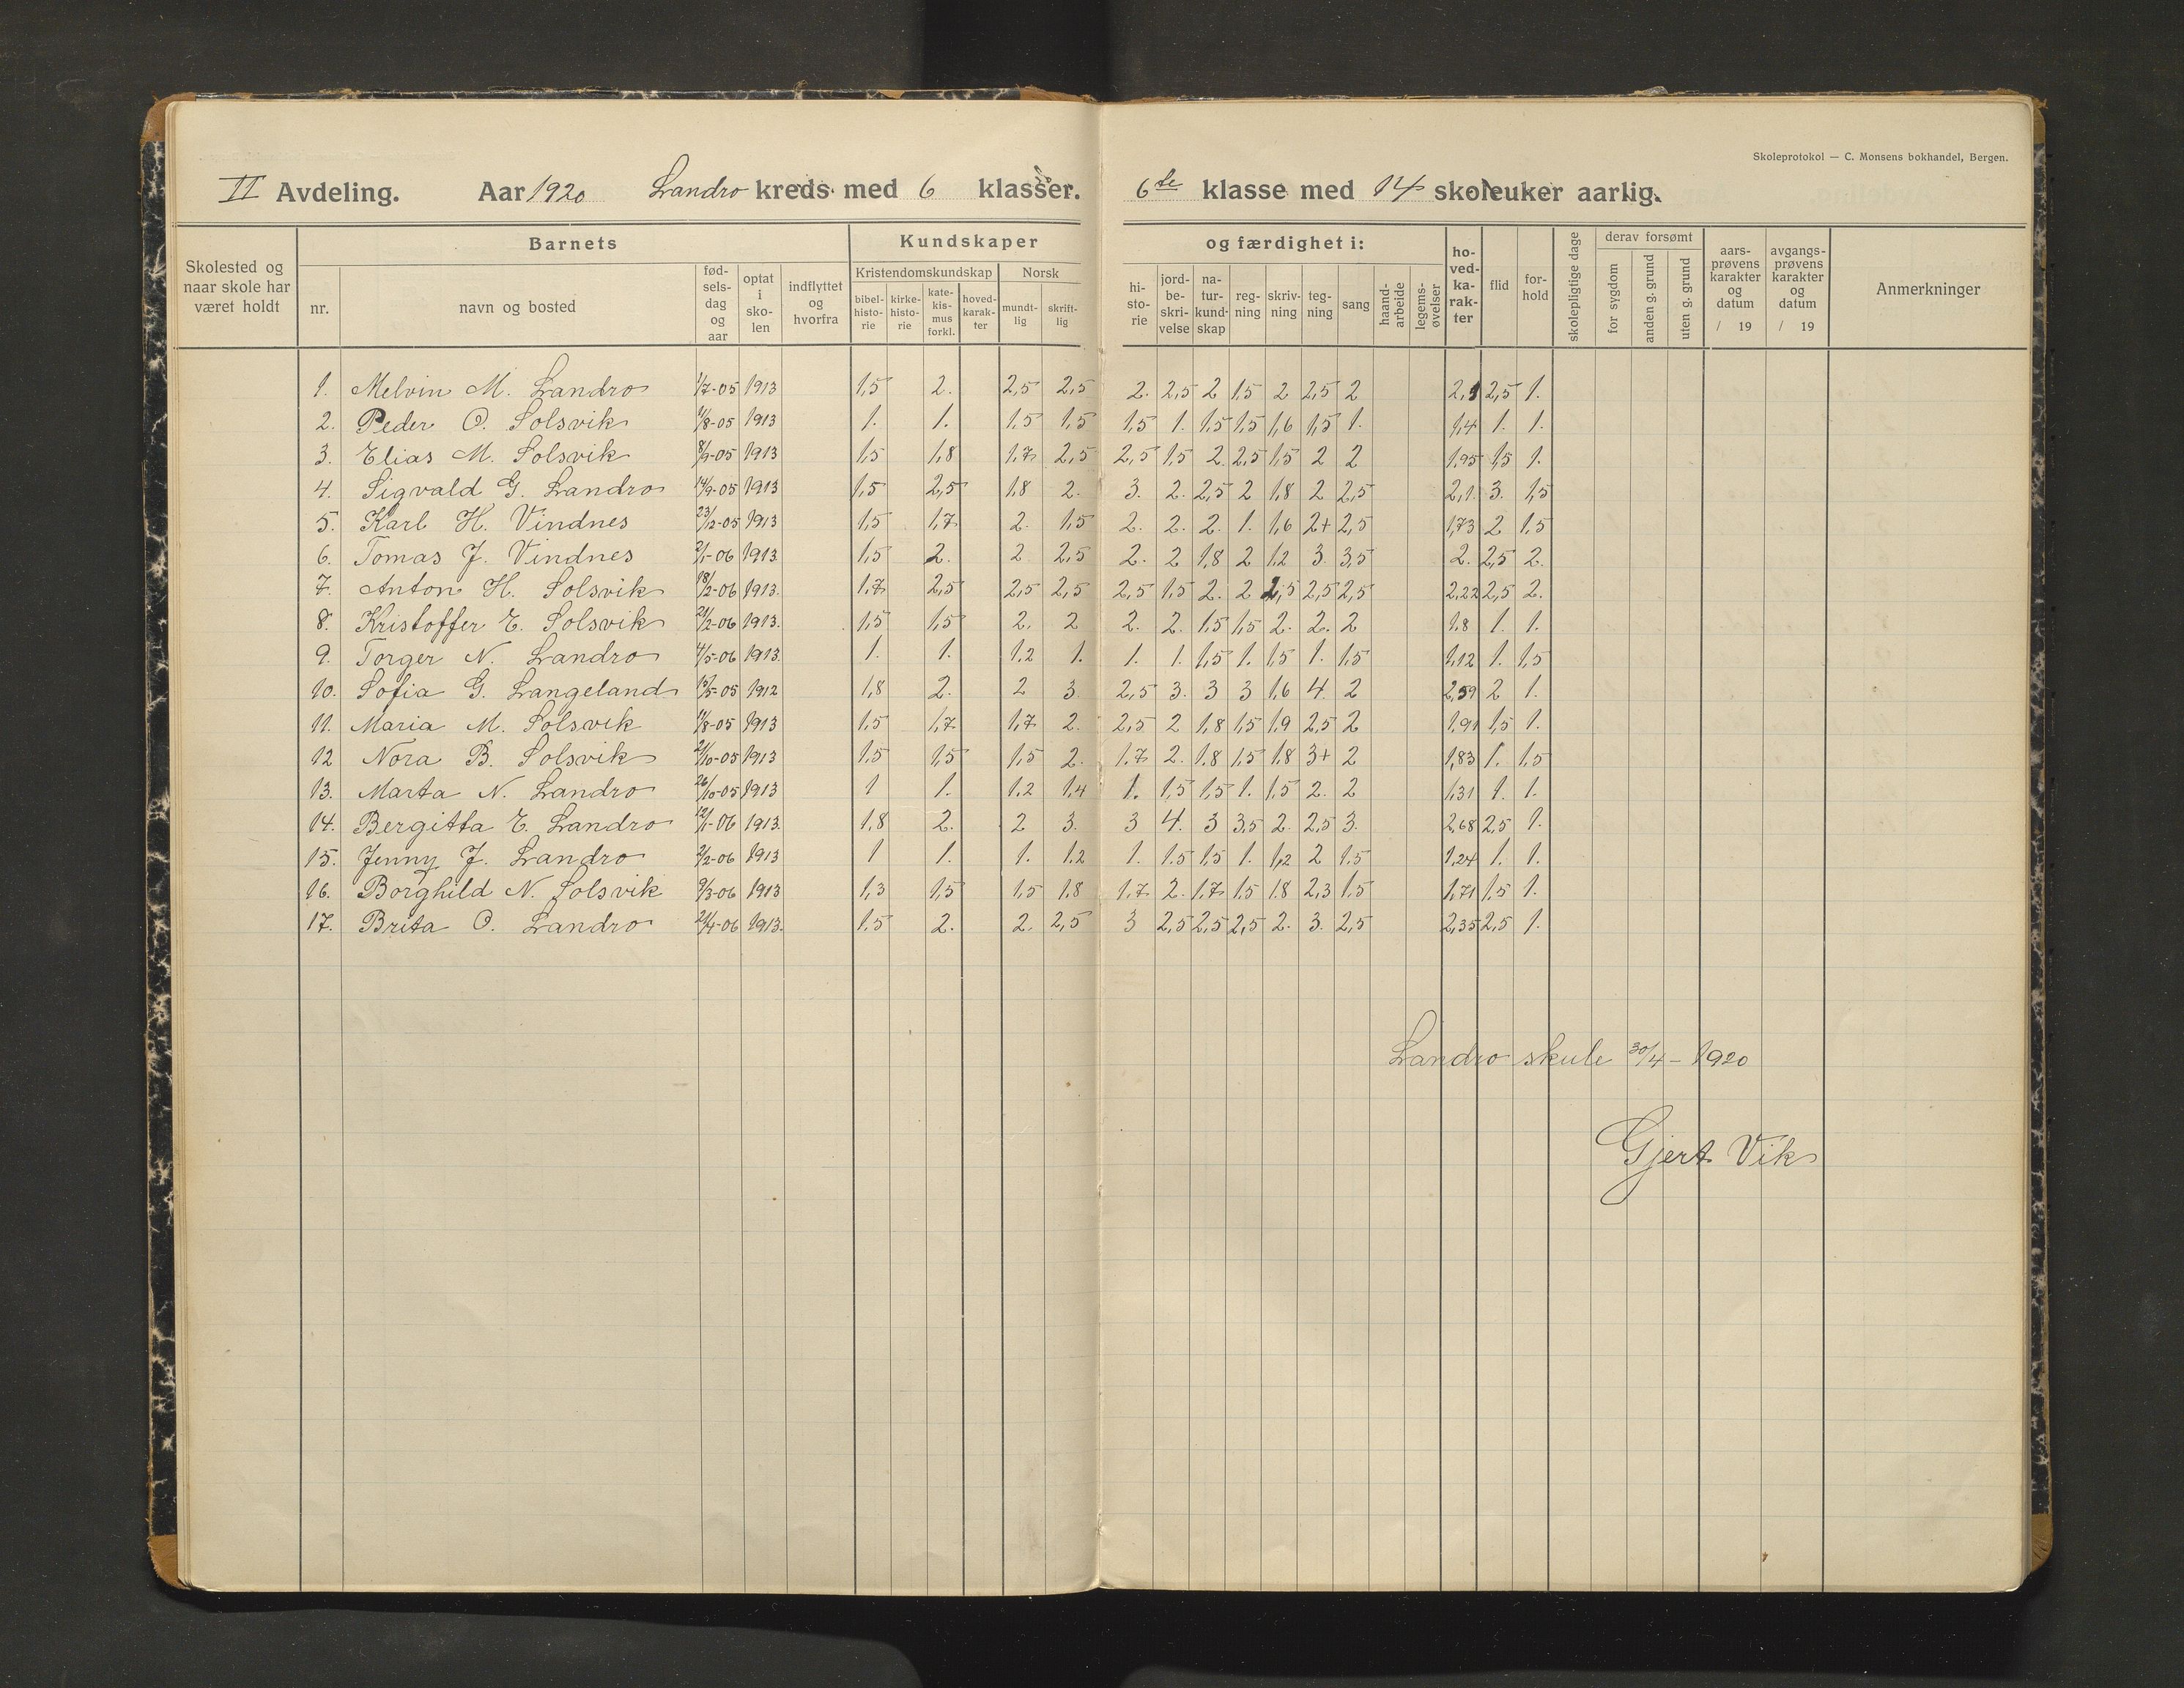 Skoleprotokol — C. Monsens bokhandel, Bergen.
II Avdeling. Aar 1920 Landro kreds med 6 klasser. 6te klasse med 14 skoleuker aarlig.
Skolested og naar skole har været holdt
Barnets
nr. navn og bosted fød-sels-dag og aar optat i sko-len indflyttet og hvorfra
Kundskaper og færdighet i:
Kristendomskundskap Norsk
bibel-histo-rie kirke-histo-rie kate-kis-mus forkl. hoved-karak-ter mundt-lig skrift-lig
hi-sto-rie jord-be-skri-velse na-tur-kund-skap reg-ning skriv-ning teg-ning sang haand-arbeide legems-øvelser
ho-ved-ka-rak-ter flid for-hold skolepligtige dage
derav forsømt
for sygdom anden g. grund uten g. grund
aars-prøvens karakter og datum / 19
avgangs-prøvens karakter og datum / 19
Anmerkninger
1. Melvin M. Landro 1/7-05 1913 1,5 2. 2,5 2,5 2. 2,5 2 1,5 2 2,5 2 2,5 1.
2. Peder O. Solsvik 1/8-05 1913 1. 1. 1,5 1,5 1,5 1. 1,5 1,5 1,6 1,5 1. 1,4 1. 1.
3. Elias M. Solsvik 8/9-05 1913 1,5 1,8 1,7 2,5 2,5 1,5 2. 2,5 1,5 2 2 1,95 1,5 1.
4. Sigvald G. Landro 14/9-05 1913 1,5 2,5 1,8 2. 3. 2. 2,5 2 1,8 2 2,5 2,1. 3. 1,5
5. Karl H. Vindnes 23/12-05 1913 1,5 1,7 2. 1,5 2. 2. 2. 1. 1,6 2+ 2,5 1,73 2 1,5
6. Tomas J. Vindnes 2/1-06 1913. 1,5 2. 2 2,5 2. 2 1,8 2 1,2 3. 3,5 2. 2,5 2.
7. Anton H. Solsvik 18/2-06 1913. 1,7 2,5 2,5 2,5 2,5 1,5 2. 2 2,5 2,5 2,22 2,5 2.
8. Kristoffer E. Solsvik 21/2-06 1913. 1,5 1,5 2. 2 2. 2. 1,5 1,5 2. 2. 2 1,8 1. 1.
9. Torger N. Landro 4/5-06 1913. 1. 1. 1,2 1. 1. 1. 1,5 1. 1,5 1. 1,5 1,12 1. 1,5
10. Sofia G. Langeland 15/5-05 1912 1,8 2. 2 3. 2,5 3. 3 3 1,6 4. 2 2,59 2 1.
11. Maria M. Solsvik 11/8-05 1913 1,5 1,7 1,7 2. 2,5 2 1,8 1,5 1,9 2,5 2 1,91 1,5 1.
12 Nora B. Solsvik 21/10-05 1913 1,5 1,5 1,5 2. 1,7 2. 1,8 1,5 1,8 3+ 2 1,83 1. 1,5
13. Marta N. Landro 26/10-05 1913 1 1. 1,2 1,4 1. 1,5 1,5 1. 1,5 2. 2 1,31 1. 1.
14. Bergitta E. Landro 12/1-06 1913. 1,8 2. 2 3. 3 4. 3 3,5 2. 2,5 3. 2,68 2,5 1.
15. Jenny J. Landro 2/2-06 1913 1 1. 1. 1,2 1. 1,5 1,5 1. 1,2 2 1,5 1,24 1. 1.
16. Borghild N. Solsvik 9/3-06 1913 1,3 1,5 1,5 1,8 1,7 2. 1,7 1,5 1,8 2,3 1,5 1,71 1,5 1.
17. Brita O. Landro 21/4-06 1913. 1,5 2. 2. 2,5 3 2,5 2,5 2,5 2. 3. 2,5 2,35 2,5 1.
Landro skule 30/4 - 1920
Gjert Vik